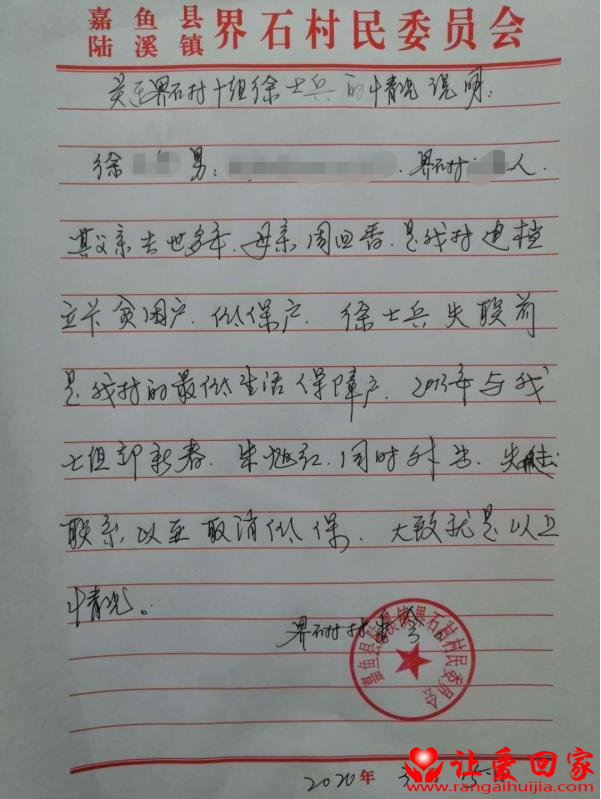 嘉鱼县
陆溪镇
界石村民委员会
关于界石村十组徐士兵的情况说明:
徐 男: 界石村 人.
其父亲去世多年.母亲周回香.是我村建档
立卡贫困户.低保户.徐士兵失联前
是我村的最低生活保障户.2013年与我
七组郭新春.朱 红.同时外出.失去
联系,以至取消低保.大致就是以上
情况。
界石村村委会
嘉鱼县陆溪镇界石村村民委员会
2020年3. 15
让爱回家
www.rangaihuijia.com